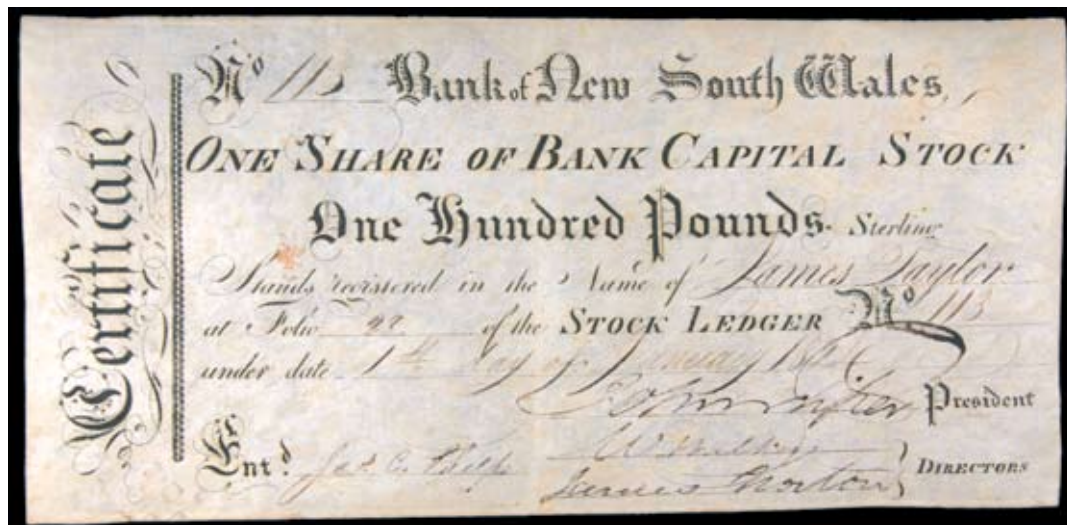 Certificate
No 113 Bank of New South Wales,
ONE SHARE OF BANK CAPITAL STOCK
One Hundred Pounds. Sterling
Stands registered in the Name of James Taylor
at Folio of the STOCK LEDGER No 113
under date 1st day of January
President
James Norton DIRECTORS
Entd.